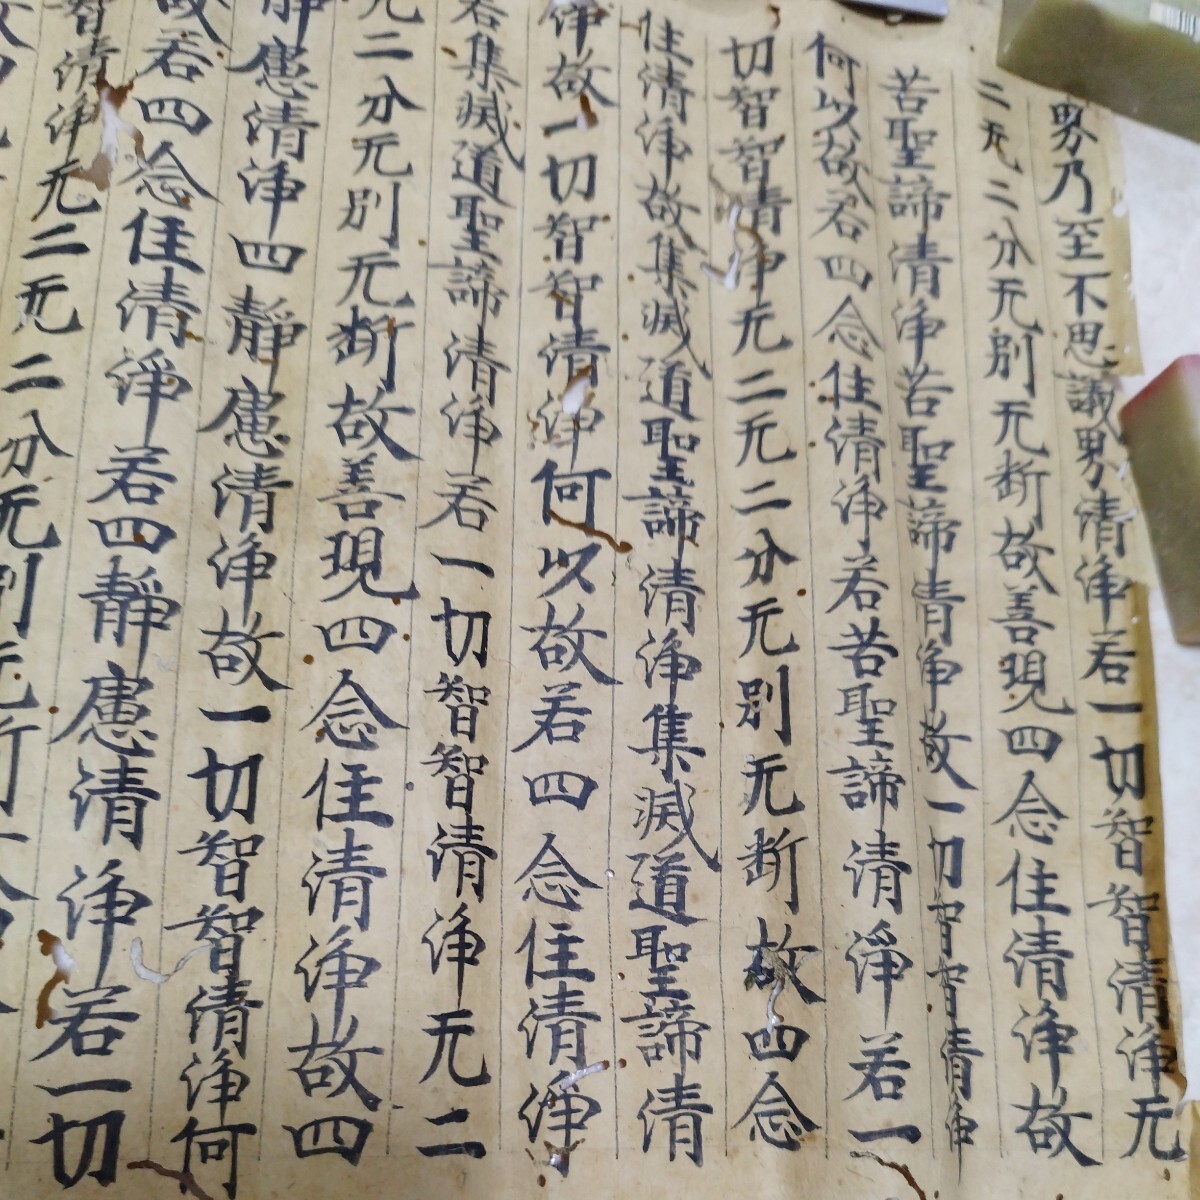 界乃至不思議界清淨若一切智智清淨无
二无二分无別无断故善現四念住清淨故
苦聖諦清淨苦聖諦清淨故一切智智清淨
何以故若四念住清淨若苦聖諦清淨若一
切智智清淨无二无二分无別无断故四念
住清淨故集滅道聖諦清淨集滅道聖諦清
淨故一切智智清淨何以故若四念住清淨
若集滅道聖諦清淨若一切智智清淨无二
无二分无別无断故善現四念住清淨故四
靜慮清淨四靜慮清淨故一切智智清淨何
故若四念住清淨若四靜慮清淨若一切
智清淨无二无二分无別无断